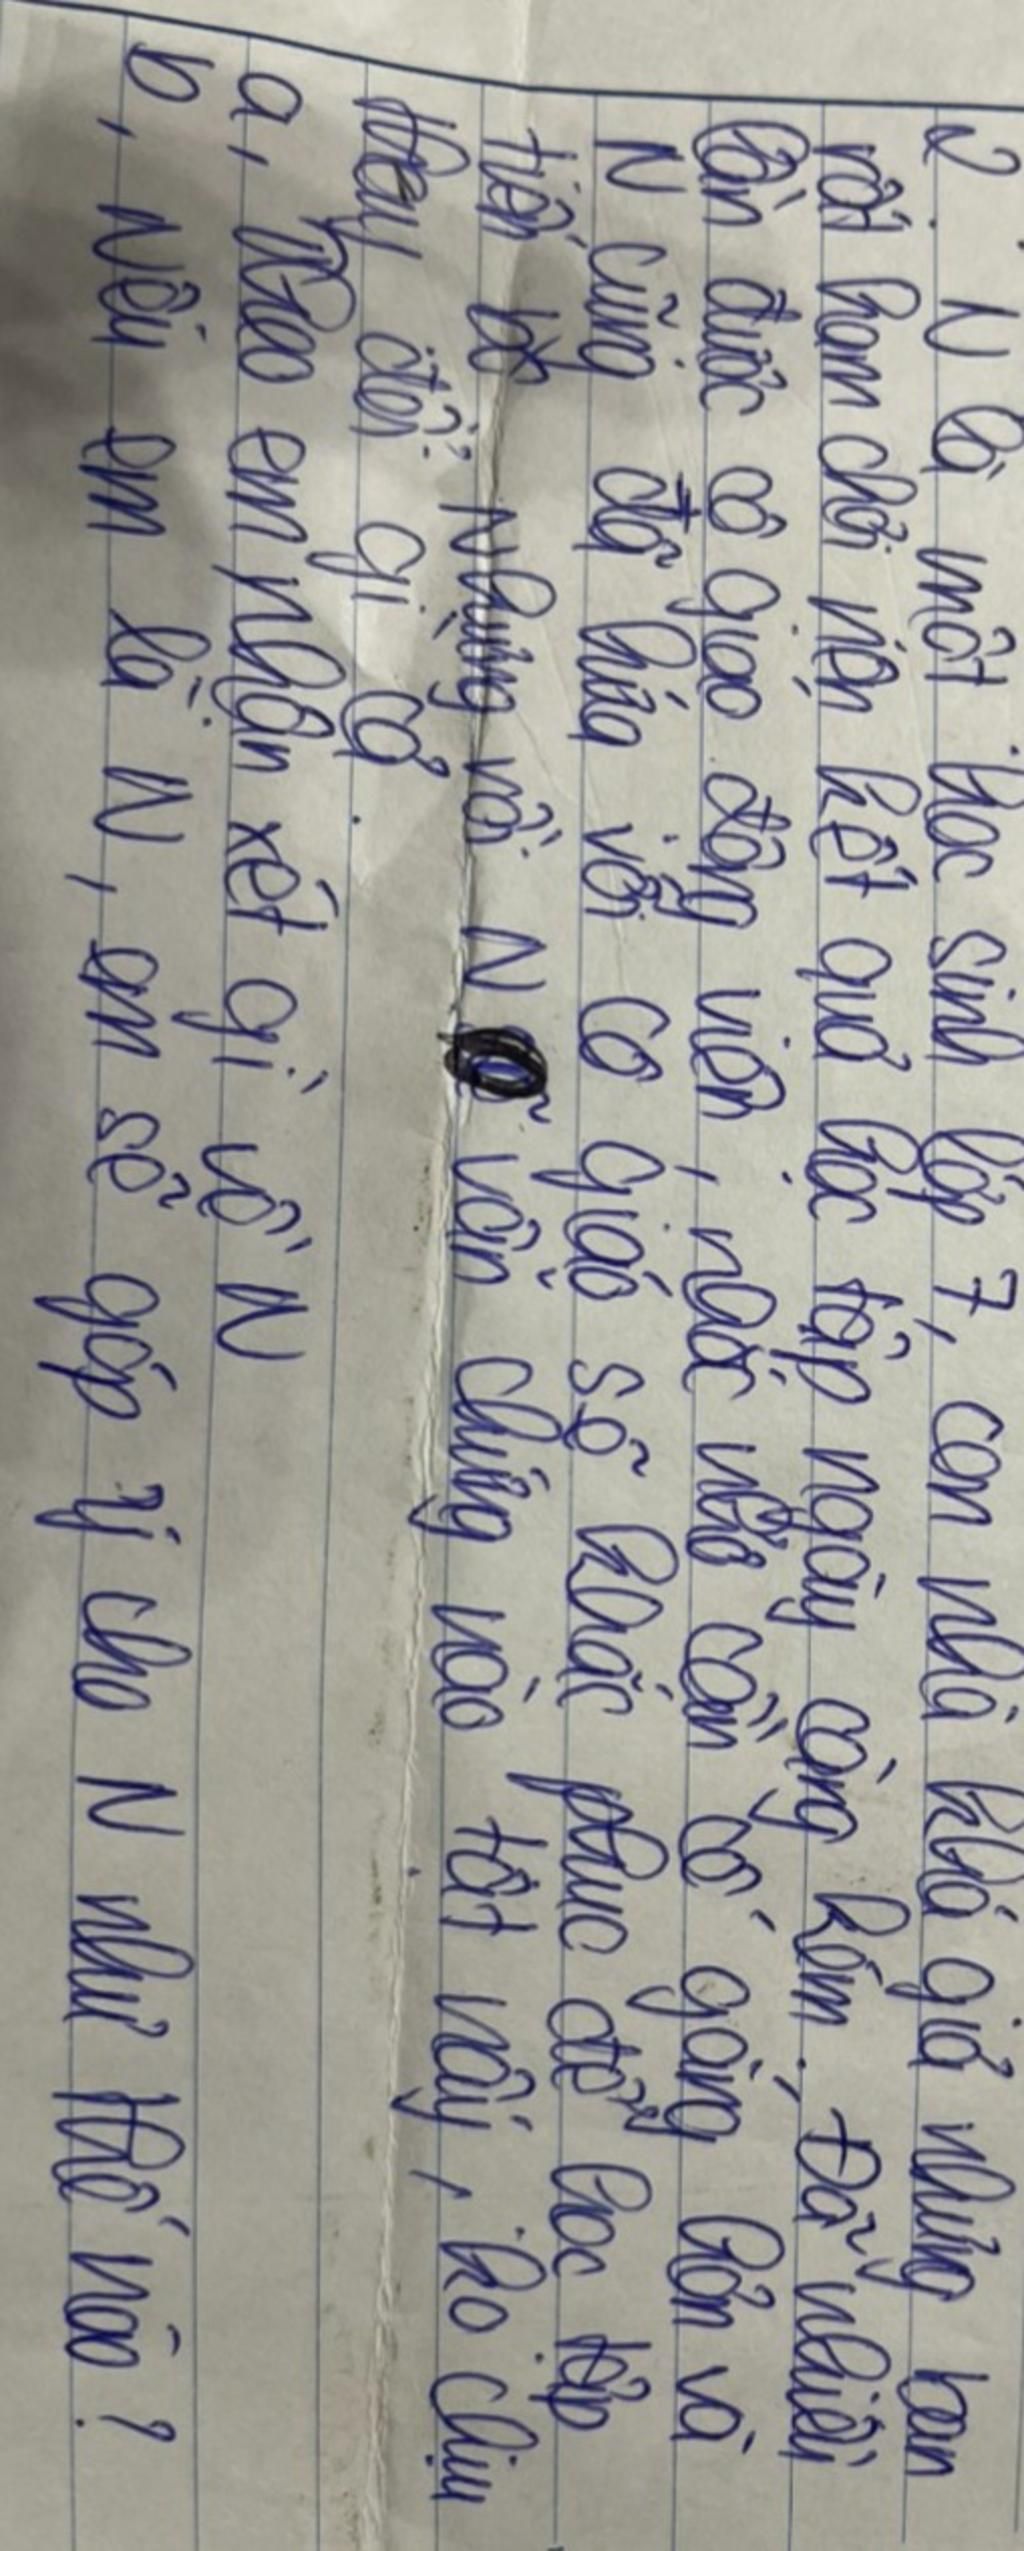 2. N là một học sinh lớp 7, con nhà khá giả nhưng bạn
rất ham chơi nên kết quả học tập ngày càng kém. Đã nhiều
lần được cô giáo động viên, nhắc nhở cần cố gắng hơn và
N cũng đã hứa với cô giáo sẽ khắc phục để học tập
tiến bộ. Nhưng rồi N vẫn chứng nào tật nấy, ko chịu
thay đổi gì cả.
a, Theo em nhận xét gì về N
b, Nếu em là N, em sẽ góp ý cho N như thế nào?